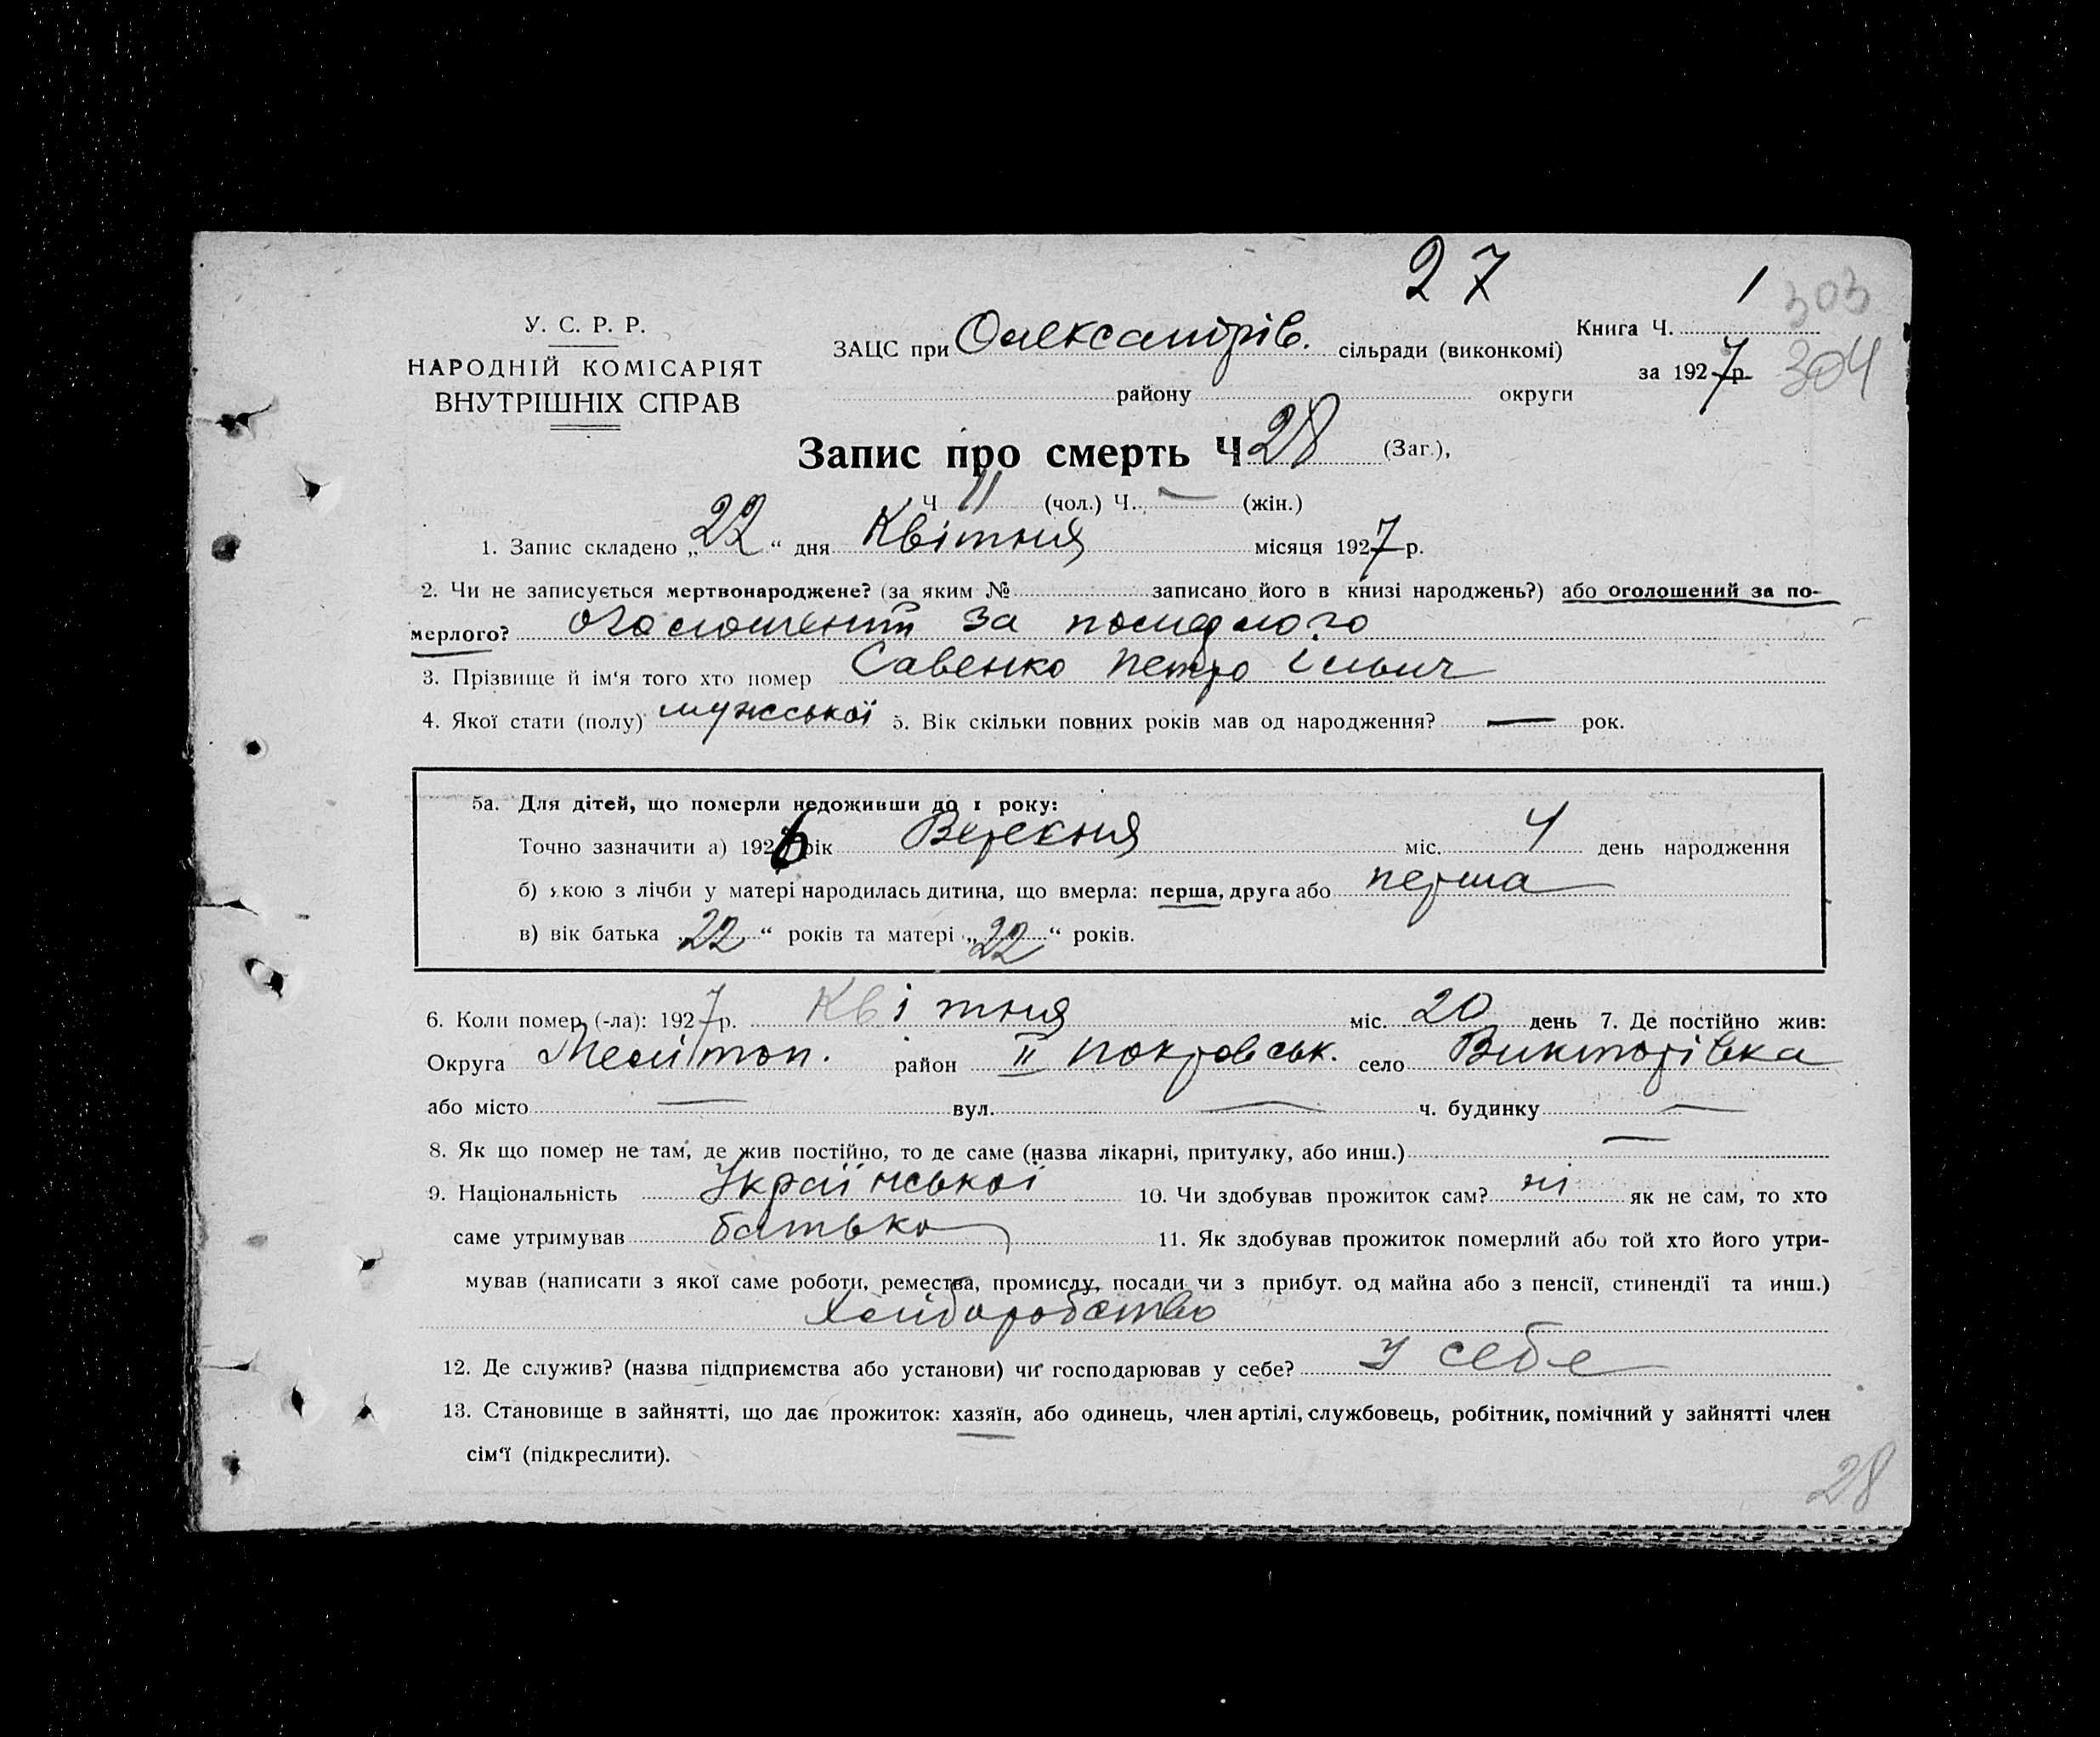 27
1 303
У. С. Р. Р.
НАРОДНІЙ КОМІСАРІЯТ
ВНУТРІШНІХ СПРАВ
ЗАЦС при Олександрів. сільради (виконкомі)
Книга Ч.
за 1927 р. 304
району округи
Запис про смерть Ч 28 (Заг.),
Ч 11 (чол.) Ч. — (жін.)
1. Запис складено „22“ дня Квітня місяця 1927 р.
2. Чи не записується мертвонароджене? (за яким № записано його в книзі народжень?) або оголошений за по-
мерлого? за померлого
3. Прізвище й ім'я того хто помер Савенко Петро Ільич
4. Якої стати (полу) мужської 5. Вік скільки повних років мав од народження? — рок.
5а. Для дітей, що померли недоживши до 1 року:
Точно зазначити а) 1926 рік Вересня міс. 4 день народження
б) якою з лічби у матері народилась дитина, що вмерла: перша, друга або перша
в) вік батька „22“ років та матері „22“ років.
6. Коли помер (-ла): 1927 р. Квітня міс. 20 день 7. Де постійно жив:
Округа Меліто́п. район II Покровськ. село Викторівка
або місто — вул. — ч. будинку —
8. Як що помер не там, де жив постійно, то де саме (назва лікарні, притулку, або инш.) —
9. Національність Української 10. Чи здобував прожиток сам? ні як не сам, то хто
саме утримував батько 11. Як здобував прожиток померлий або той хто його утри-
мував (написати з якої саме роботи, ремества, промислу, посади чи з прибут. од майна або з пенсії, стипендії та инш.)
Хліборобство
12. Де служив? (назва підприємства або установи) чи господарював у себе? у себе
13. Становище в зайнятті, що дає прожиток: хазяїн, або одинець, член артілі, службовець, робітник, помічний у зайнятті член
сім'ї (підкреслити).
28